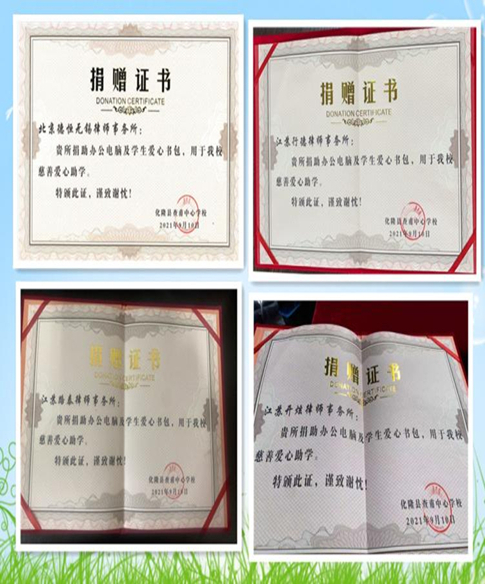 捐赠证书
DONATION CERTIFICATE
北京德恒无锡律师事务所：
贵所捐助办公电脑及学生爱心书包，用于我校
慈善爱心助学。
特颁此证，谨致谢忱！
化隆县查甫中心学校
2021年9月10日
捐赠证书
DONATION CERTIFICATE
江苏行德律师事务所：
贵所捐助办公电脑及学生爱心书包，用于我校
慈善爱心助学。
特颁此证，谨致谢忱！
化隆县查甫中心学校
2021年9月10日
捐赠证书
DONATION CERTIFICATE
江苏路泰律师事务所：
贵所捐助办公电脑及学生爱心书包，用于我校
慈善爱心助学。
特颁此证，谨致谢忱！
化隆县查甫中心学校
2021年9月10日
捐赠证书
DONATION CERTIFICATE
江苏开炫律师事务所：
贵所捐助办公电脑及学生爱心书包，用于我校
慈善爱心助学。
特颁此证，谨致谢忱！
化隆县查甫中心学校
2021年9月10日